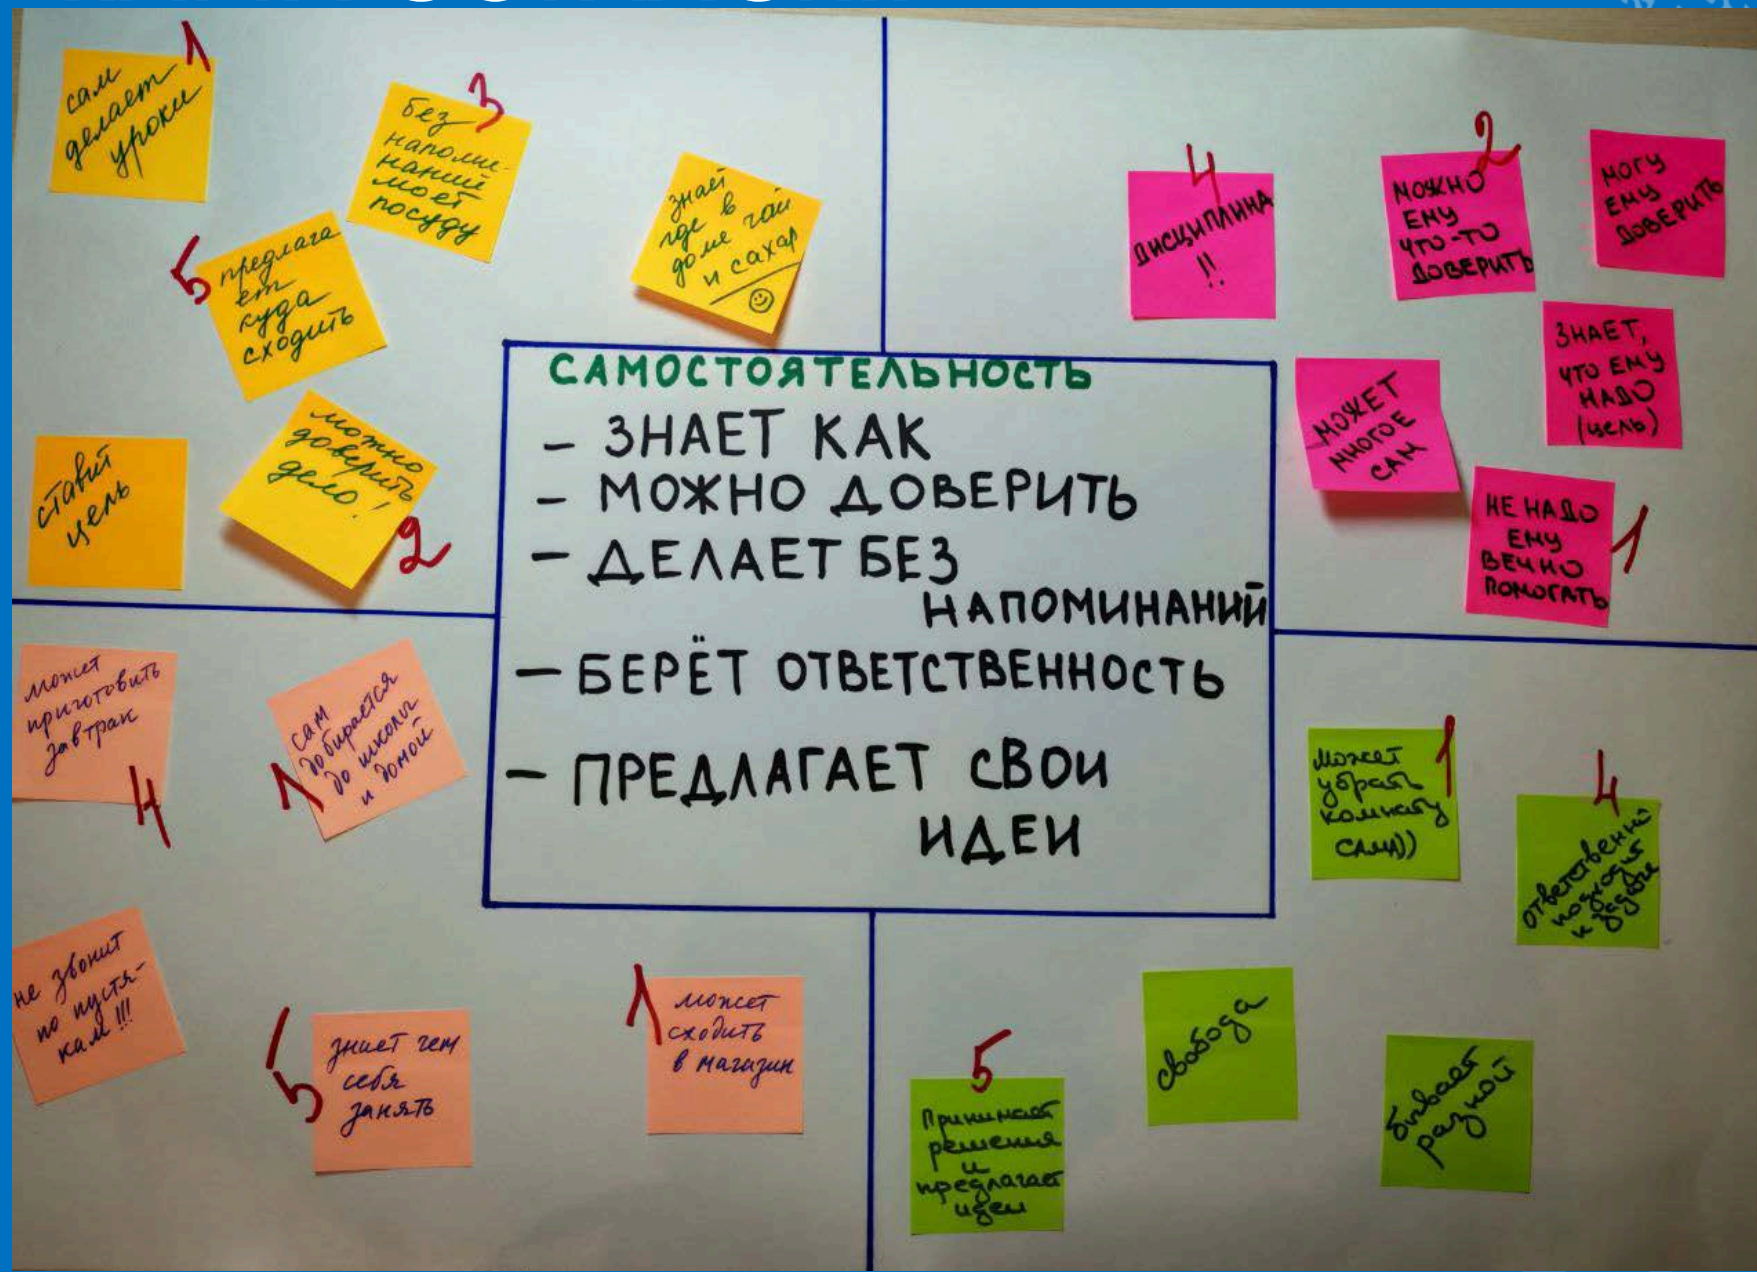 1
сам
делает
уроки
3
без
напоми-
наний
моет
посуду
знает
где в
доме чай
и сахар
5
предлага
ет
куда
сходить
ставит
цель
можно
доверить
дело!
2
4
ДИСЦИПЛИНА
!!
2
МОЖНО
ЕМУ
ЧТО-ТО
ДОВЕРИТЬ
МОГУ
ЕМУ
ДОВЕРИТЬ
ЗНАЕТ,
ЧТО ЕМУ
НАДО
(ЦЕЛЬ)
МОЖЕТ
МНОГОЕ
САМ
НЕ НАДО
ЕМУ
ВЕЧНО
ПОМОГАТЬ
1
САМОСТОЯТЕЛЬНОСТЬ
- ЗНАЕТ КАК
- МОЖНО ДОВЕРИТЬ
- ДЕЛАЕТ БЕЗ
НАПОМИНАНИЙ
- БЕРЁТ ОТВЕТСТВЕННОСТЬ
- ПРЕДЛАГАЕТ СВОИ
ИДЕИ
может
приготовить
завтрак
4
1
сам
добирается
до школы
и домой
не звонит
по пустя-
кам!!!
5
знает чем
себя
занять
1
может
сходить
в магазин
1
может
убрать
комнату
САМА))
4
ответственно
подходит
к задаче
5
Принимает
решения
и
предлагает
идеи
свобода
бывает
разной